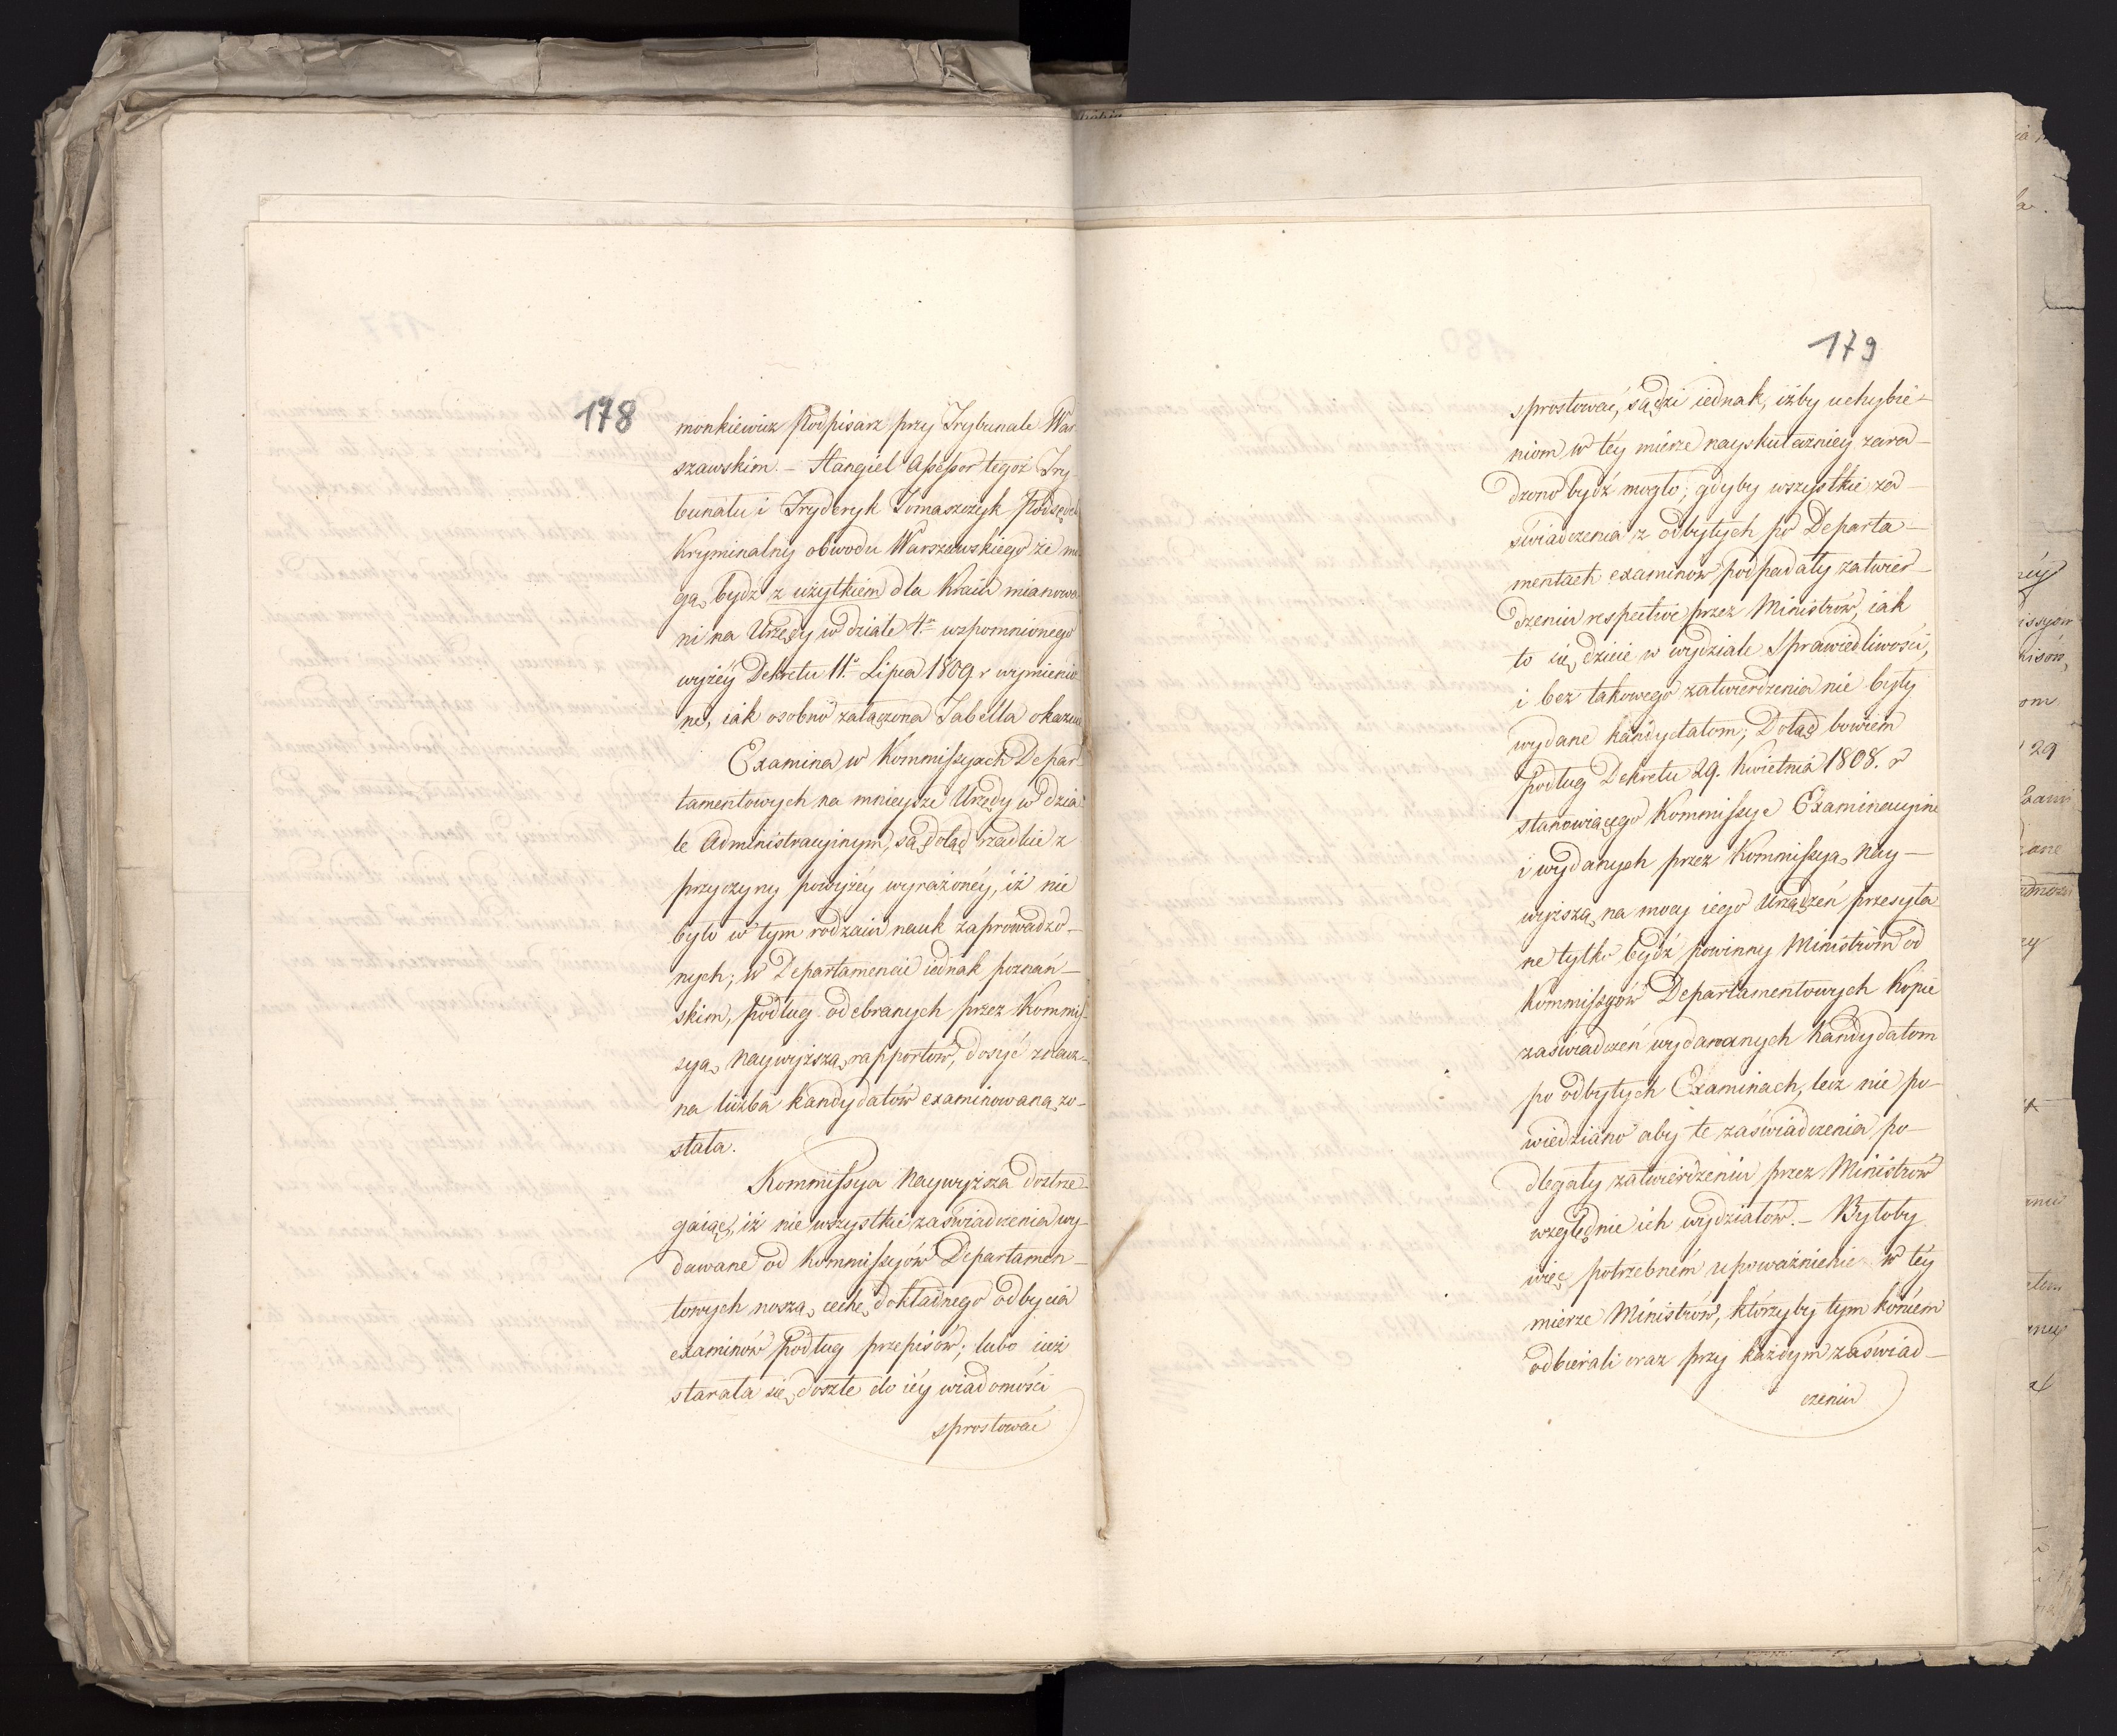 178
monkiewicz Podpisarz przy Trybunale War
szawskim. – Stangiel Assessor tegoż Try
bunału i Fryderyk Tomaszczyk Podsędek
Kryminalny obwodu Warszawskiego że mo
gą bydź z użytkiem dla Kraiu mianowa
ni na Urzędy w dziale 4.m wspomnionego
wyżéy Dekretu 11.o Lipca 1809 r wymienio
ne, iak osobno załączona Tabella okazuie
Examina w Kommissyach Depar
tamentowych na mnieysze Urzędy w dzia
le Administracyinym, są dotąd rzadkie z
przyczyny powyżéy wyrażonéy, iż nie
było w tym rodzaiu nauk zaprowadzo-
nych; w Departamencie iednak poznań-
skim, podług odebranych przez Kommis-
syą Naywyższą rapportów, dosyć znacz-
na liczba kandydatów examinowaną zo-
stała.
Kommissya Naywyższa dostrze-
gaiąc, iż nie wszystkie zaświadczenia wy-
dawane od Kommissyów Departamen-
towych noszą cechę dokładnego odbycia
examinów podług przepisów; lubo iuż
starała się doszłe do iéy wiadomości
sprostować
179
sprostować, sądzi iednak, iżby uchybie-
niom w téy mierze nayskuteczniey zara-
dzono bydź mogło; gdyby wszystkie za-
świadczenia z odbytych po Departa-
mentach examinów podpadały zatwier-
dzeniu respective przez Ministrów, iak
to się dzieie w wydziale Sprawiedliwości,
i bez takowego zatwierdzenia nie były
wydane kandydatom; Dotąd bowiem
podług Dekretu 29. Kwietnia 1808. r
stanowiącego Kommissye Examinacyine
i wydanych przez Kommissyą Nay-
wyższą na mocy iego Urządzeń przesyła
ne tylko bydź powinny Ministrom od
Kommissyów Departamentowych Kopie
zaświadczeń wydawanych Kandydatom
po odbytych Examinach, lecz nie po-
wiedziano aby te zaświadczenia po-
dlegały zatwierdzeniu przez Ministrów
względnie ich wydziałów. – Byłoby
więc potrzebném upoważnienie w téy
mierze Ministrów, którzyby tym końcem
odbierali oraz przy każdym zaświad-
czeniu